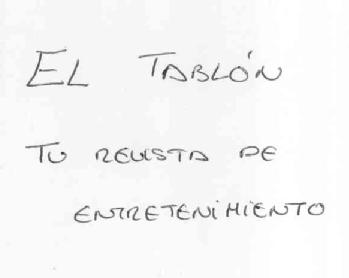 EL TABLÓN
TU REVISTA DE
ENTRETENIMIENTO